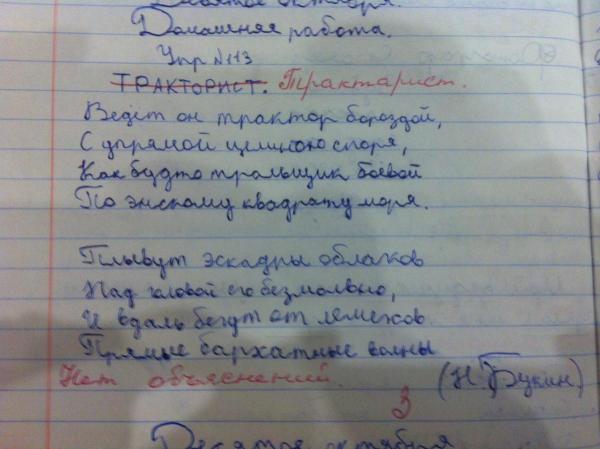 Девятое октября.
Домашняя работа.
Упр №113
ТРАКТОРИСТ. Трактарист.
Ведёт он трактор бороздой,
С упрямой целиною споря,
Как будто тральщик боевой
По энскому квадрату моря.
Плывут эскадры облаков
Над головой его безмолвно,
И вдаль бегут от лемехов
Прямые бархатные волны
Нет объяснений. (Н. Букин.)
3
Десятое октября